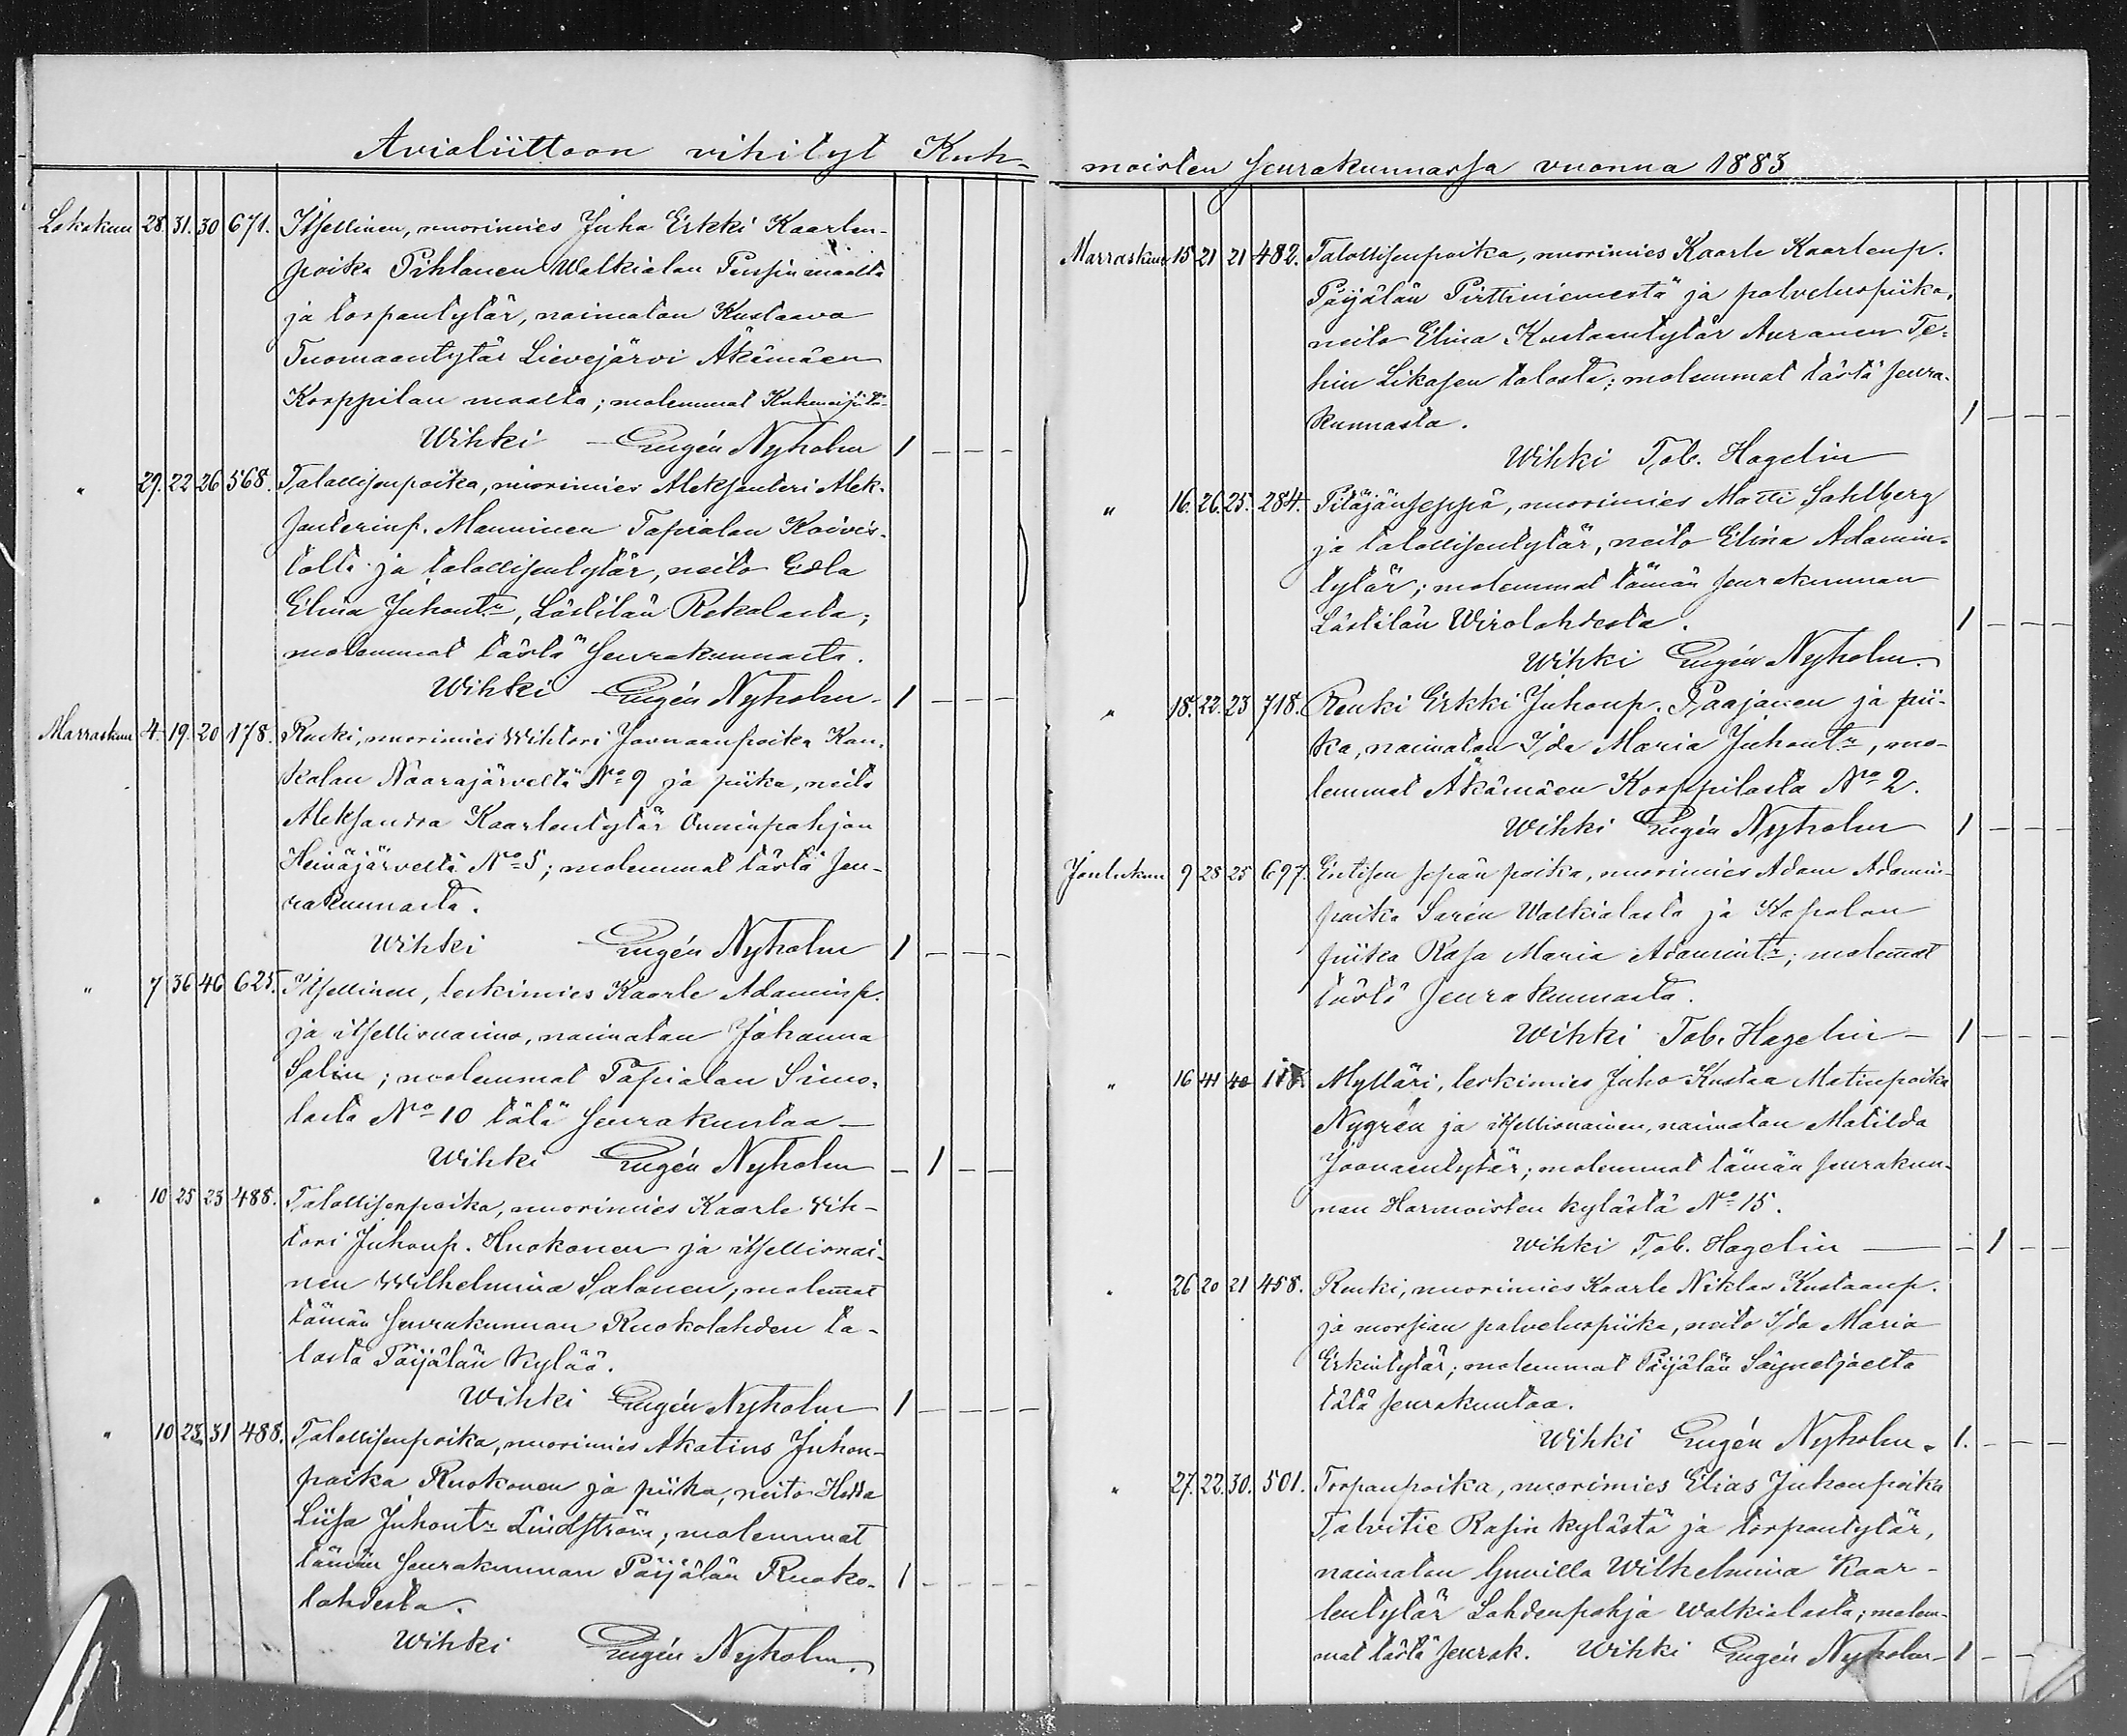 Avioliittoon vihityt Kuh-
Lokakuu 28. 31. 30 671. Itsellinen, nuorimies Juha Erkki Kaarlen-
poika Pihlanen Walkialan Penssin maalta
ja torpantytär, naimaton Kustaava
Tuomaantytär Lievejärvi Äkämäen
Korppilan maalta; molemmat
Wihki Eugén Nyholm 1 – – –
" 29. 22 26 568. Talollisenpoika, nuorimies Aleksanteri Alek-
santerinp. Manninen Tapialan Koivis-
tolta ja talollisentytär, neito Edla
Elina Juhontr, Lästilän Rekolasta;
molemmat tästä seurakunnasta.
Wihki Eugén Nyholm. 1 – – –
Marraskuu 4. 19. 20 178. Renki, nuorimies Wihtori Joonaanpoika Kan-
kalan Naarajärveltä No 9 ja piika, neito
Aleksandra Kaarlentytär Onninpohjan
Heinäjärveltä No 5; molemmat tästä seu-
rakunnasta.
Wihki Eugén Nyholm 1 – – –
" 7 36 46 625. Itsellinen, leskimies Kaarle Adaminp.
ja itsellisnainen, naimaton Johanna
Salin; molemmat Tapialan Simo-
lasta No 10 tätä seurakuntaa –
Wihki Eugén Nyholm – 1 – –
" 10 25 23 488. Talollisenpoika, nuorimies Kaarle Wih-
tori Juhonp. Ruokonen ja itsellisnai-
nen Wilhelmina Salonen; molem̄at
tämän seurakunnan Ruokolahden ta-
losta Päijälän kylää.
Wihki Eugén Nyholm 1 – – –
" 10 23. 31 488. Talollisenpoika, nuorimies Akatius Juhon-
poika Ruokonen ja piika, neito Hedda
Liisa Juhontr Lindström; molemmat
tämän seurakunnan Päijälän Ruoko- 1 – – –
lahdesta.
Wihki Eugén Nyholm.
moisten seurakunnassa vuonna 1883
Marraskuu 15 21 21 482. Talollisenpoika, nuorimies Kaarle Kaarlenp.
Päijälän Pirttiniemestä ja palveluspiika,
neito Elina Kustaantytär Auranen Te-
hin Likasen talosta; molemmat tästä seura-
kunnasta. 1 – – –
Wihki Tob. Hagelin
" 16. 26. 25. 284. Pitäjänseppä, nuorimies Matti Sahlberg
ja talollisentytär, neito Elina Adamin-
tytär; molemmat tämän seurakunnan
Lästilän Wirolahdesta. 1 – – –
Wihki Eugén Nyholm.
" 18. 22. 23 718. Renki Erkki Juhonp. Paajanen ja pii-
ka, naimaton Ida Maria Juhontr, mo-
lemmat Äkämäen Korppilasta No 2.
Wihki Eugén Nyholm 1 – – –
Joulukuu 9 28 25 697. Entisen sepän poika, nuorimies Adam Adamin-
poika Sarén Walkialasta ja Kopolan
piika Rosa Maria Adamintr; molem̄at
tästä seurakunnasta.
Wihki Tob. Hagelin – 1 – – –
" 16 41 40 118. Mylläri, leskimies Juho Kustaa Matinpoika
Nygrén ja itsellisnainen, naimaton Matilda
Joonaantytär; molemmat tämän seurakun-
nan Harmoisten kylästä No 15.
Wihki Tob. Hagelin – – 1 – –
" 26 20 21 458. Renki, nuorimies Kaarle Niklas Kustaanp.
ja morsian palveluspiika, neito Ida Maria
Erkintytär; molemmat Päijälän Säynetjoelta
tätä seurakuntaa.
Wihki Eugén Nyholm. 1. – – –
" 27. 22. 30. 501. Torpanpoika, nuorimies Elias Juhonpoika
Talvitie Rasin kylästä ja torpantytär,
naimaton Gunilla Wilhelmina Kaar-
lentytär Lahdenpohja Walkialasta; molem-
mat tästä seurak. Wihki Eugén Nyholm – 1 – –